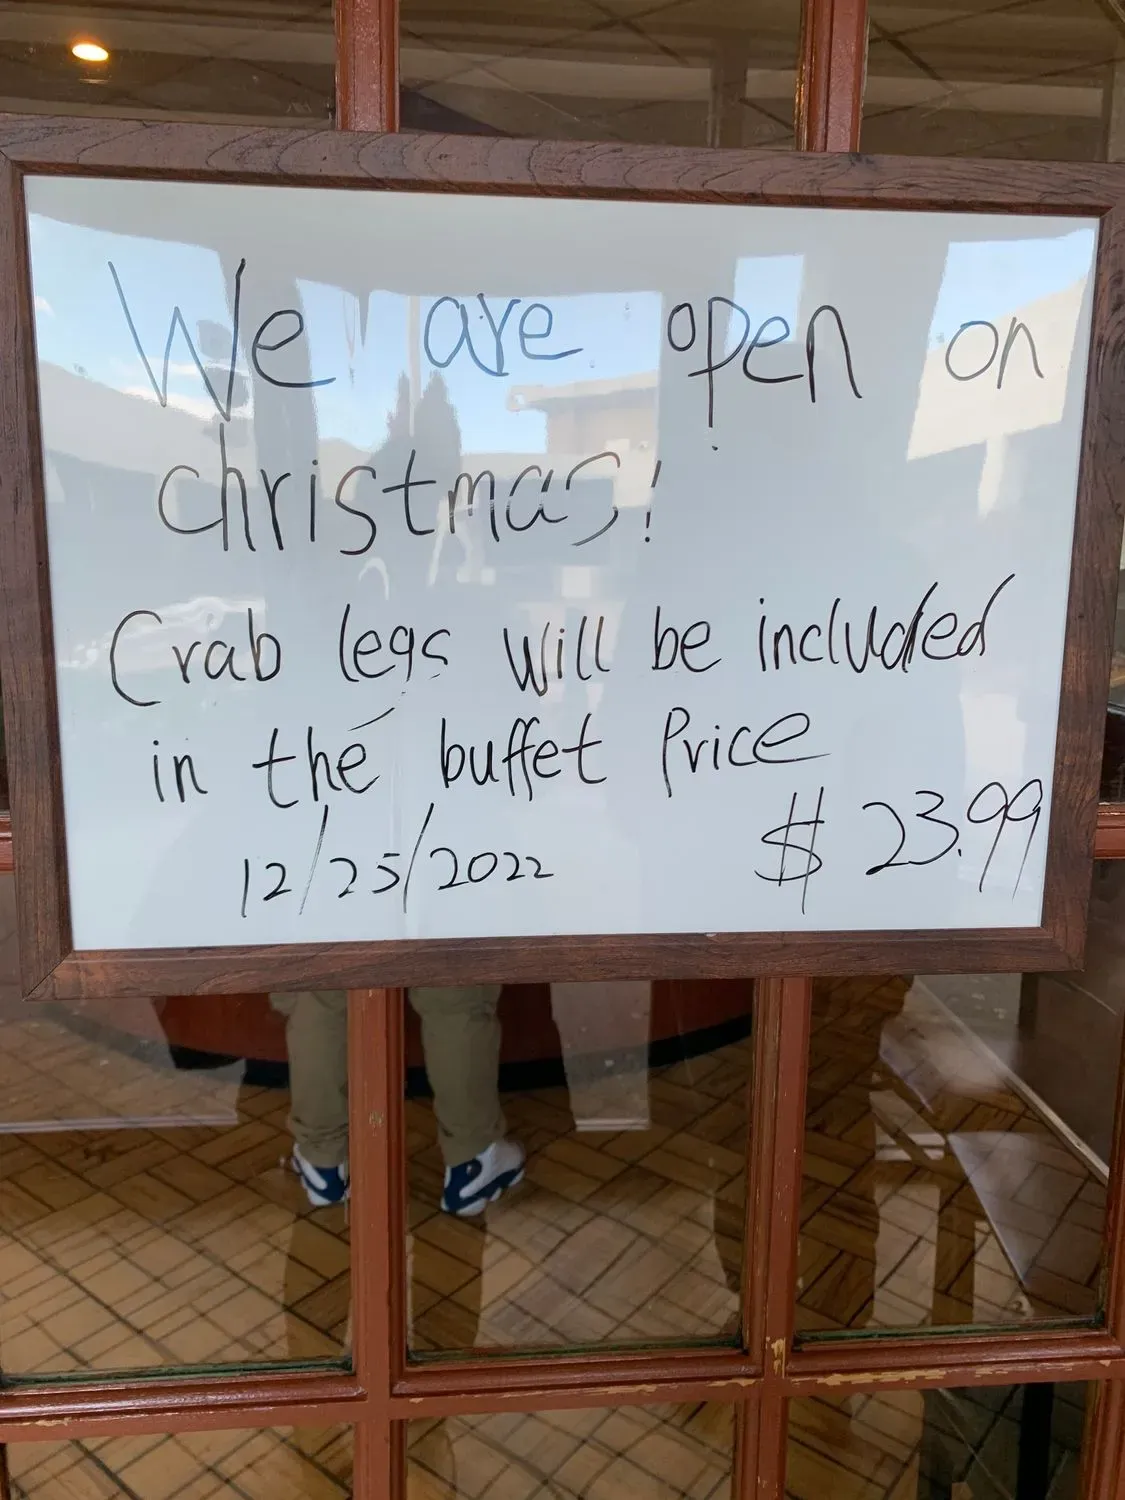 We are open on
christmas!
Crab legs will be included
in the buffet Price
12/25/2022 $ 23.99